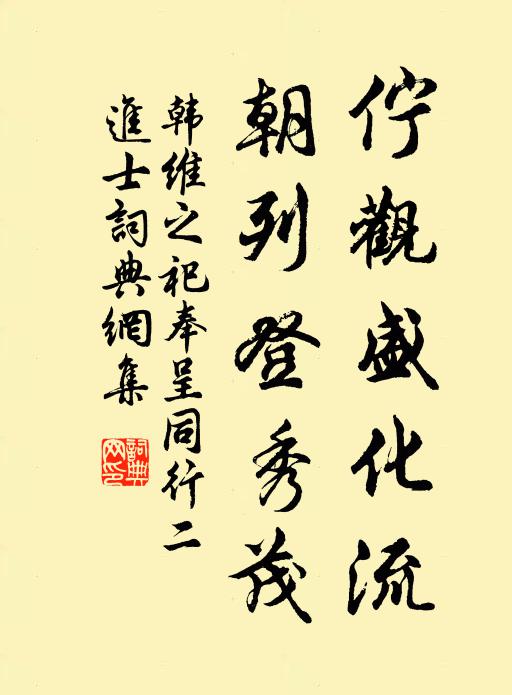 佇觀盛化流
朝列登秀茂
韩維之祀奉呈同行二
進士詞典網集
詞典
网印